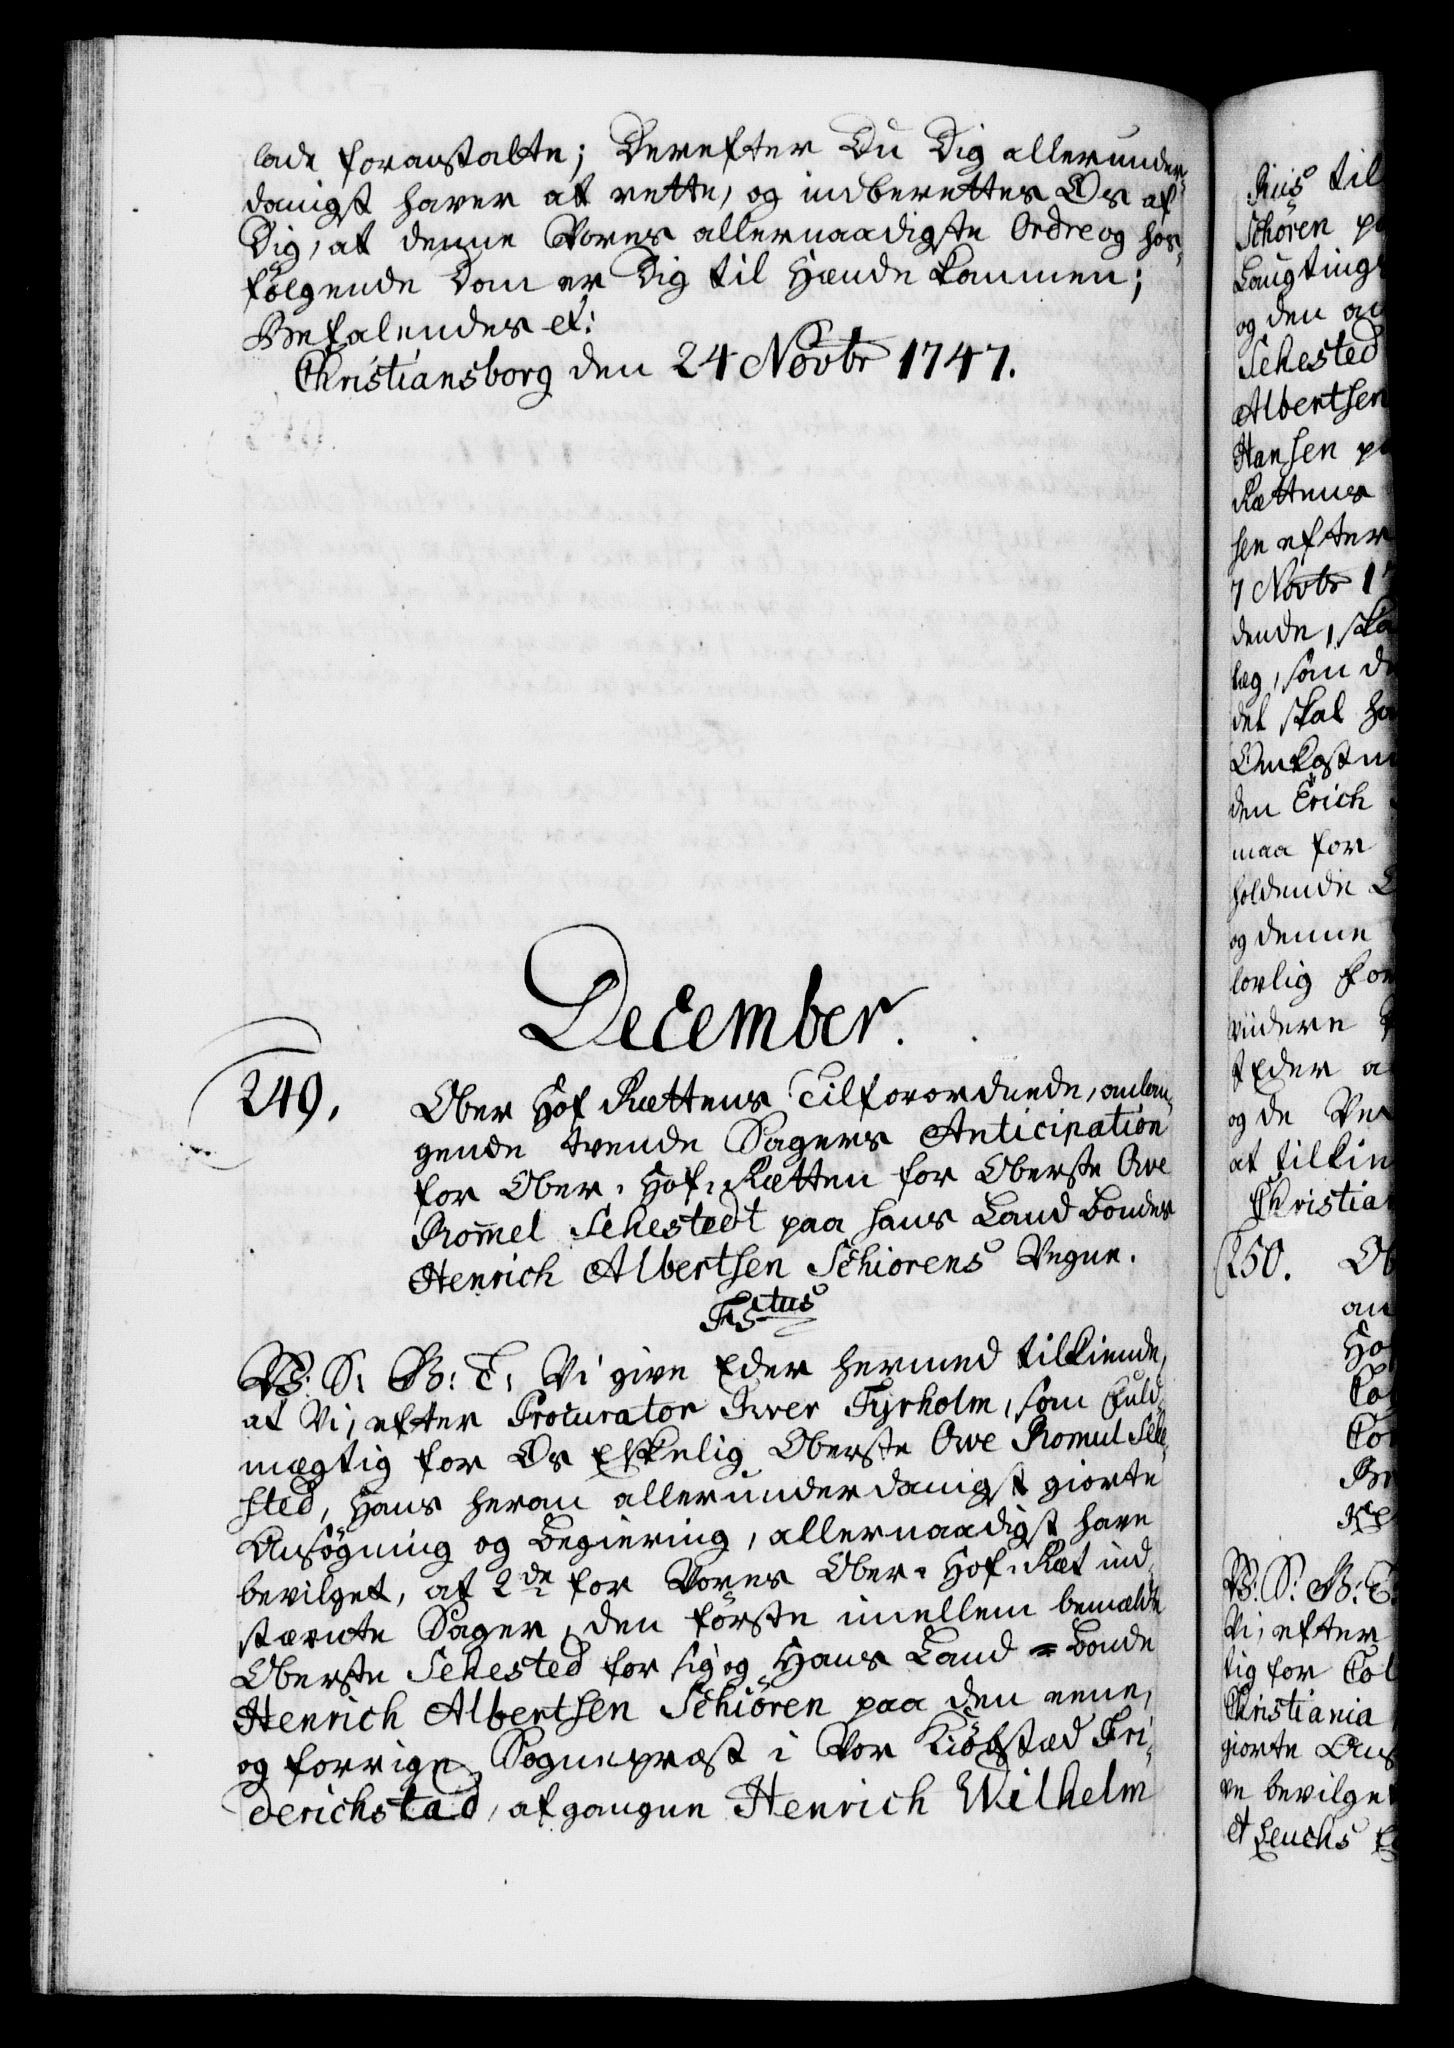 lade foranstalte; Derefter Du Dig allerunder-
danigst haver at rette, og indberettes Os af
Dig, at denne Vores allernaadigste Ordre og hos-
følgende Dom er Dig til Hænde kommen;
Befalendes etc:
Christiansborg den 24 Novbr 1747.
December.
249.
Ober Hof Rettens Tilforordnede, anlan-
gende tvende Sagers Anticipation
for Ober-Hof-Retten for Oberste Ove
Romel Sehestedt paa hans Land Bondes
Henrich Albertsen Schiørens Vegne.
W: S: G: T: Vi give Eder hermed tilkiende,
at Vi, efter Procurator Iver Fyrholm, som Fuld-
mægtig for Os Elskelig Oberste Ove Romul Sehe-
sted, Hans herom allerunderdanigst giorte
Ansøgning og Begiering, allernaadigst have
bevilget, at 2de for Vores Ober-Hof-Ret ind-
stævnte Sager, den første imellem bemælde
Oberste Sehested for sig og Hans Land-Bonde
Henrich Albertsen Schiören paa den eene,
og forrige Sognepræst i Vor Kiøbstæd Fri-
derichstad, afgangne Henrich Wilhelm
Riis til
Schören
Laugtings
og den
Sehested
Albertsen
Hansen
Rettens
sen efter
7 Novbr
dende,
læg, som
det skal
den Erich
maa for
holdende
og denne
lovlig
videre
Eder
og de
at
250.
W: S: G: T.
Vi, efter
tig for
Christiania
giorte
ve bevilget